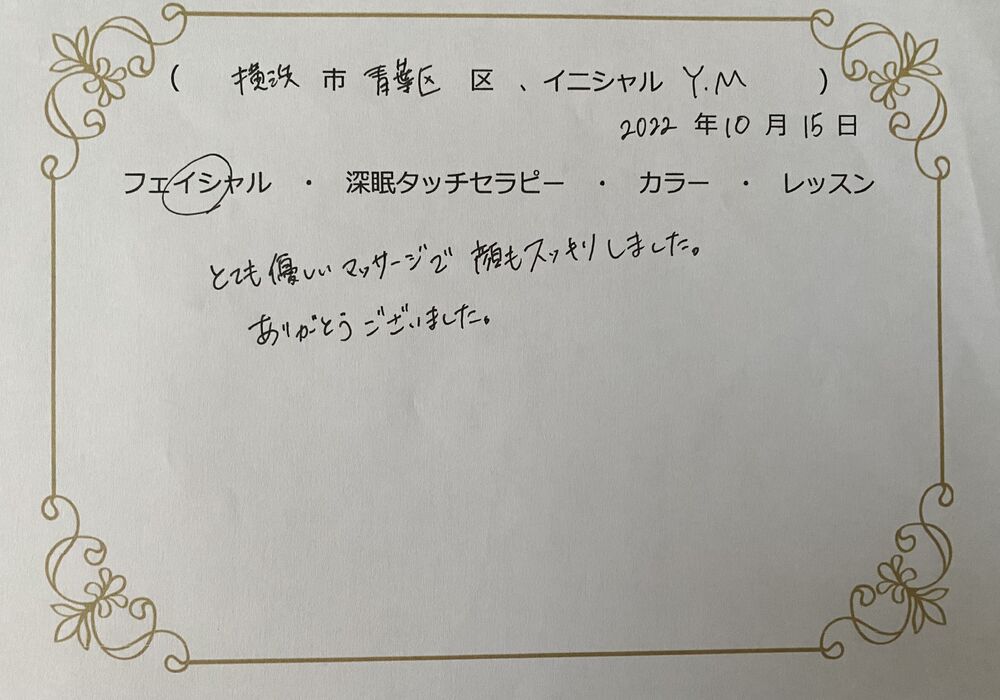 ( 横浜 市 青葉区 区 、イニシャル Y.M )
2022 年 10 月 15 日
フェイシャル ・ 深眠タッチセラピー ・ カラー ・ レッスン
とても優しいマッサージで 顔もスッキリしました。
ありがとうございました。